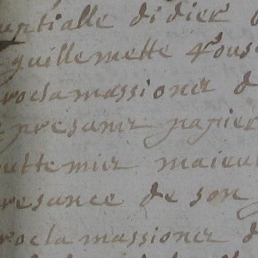 nuptialle didier
guillemette
roclamassioner d
presanir papier
uttemier maieu
resance de son
rocla massioner d